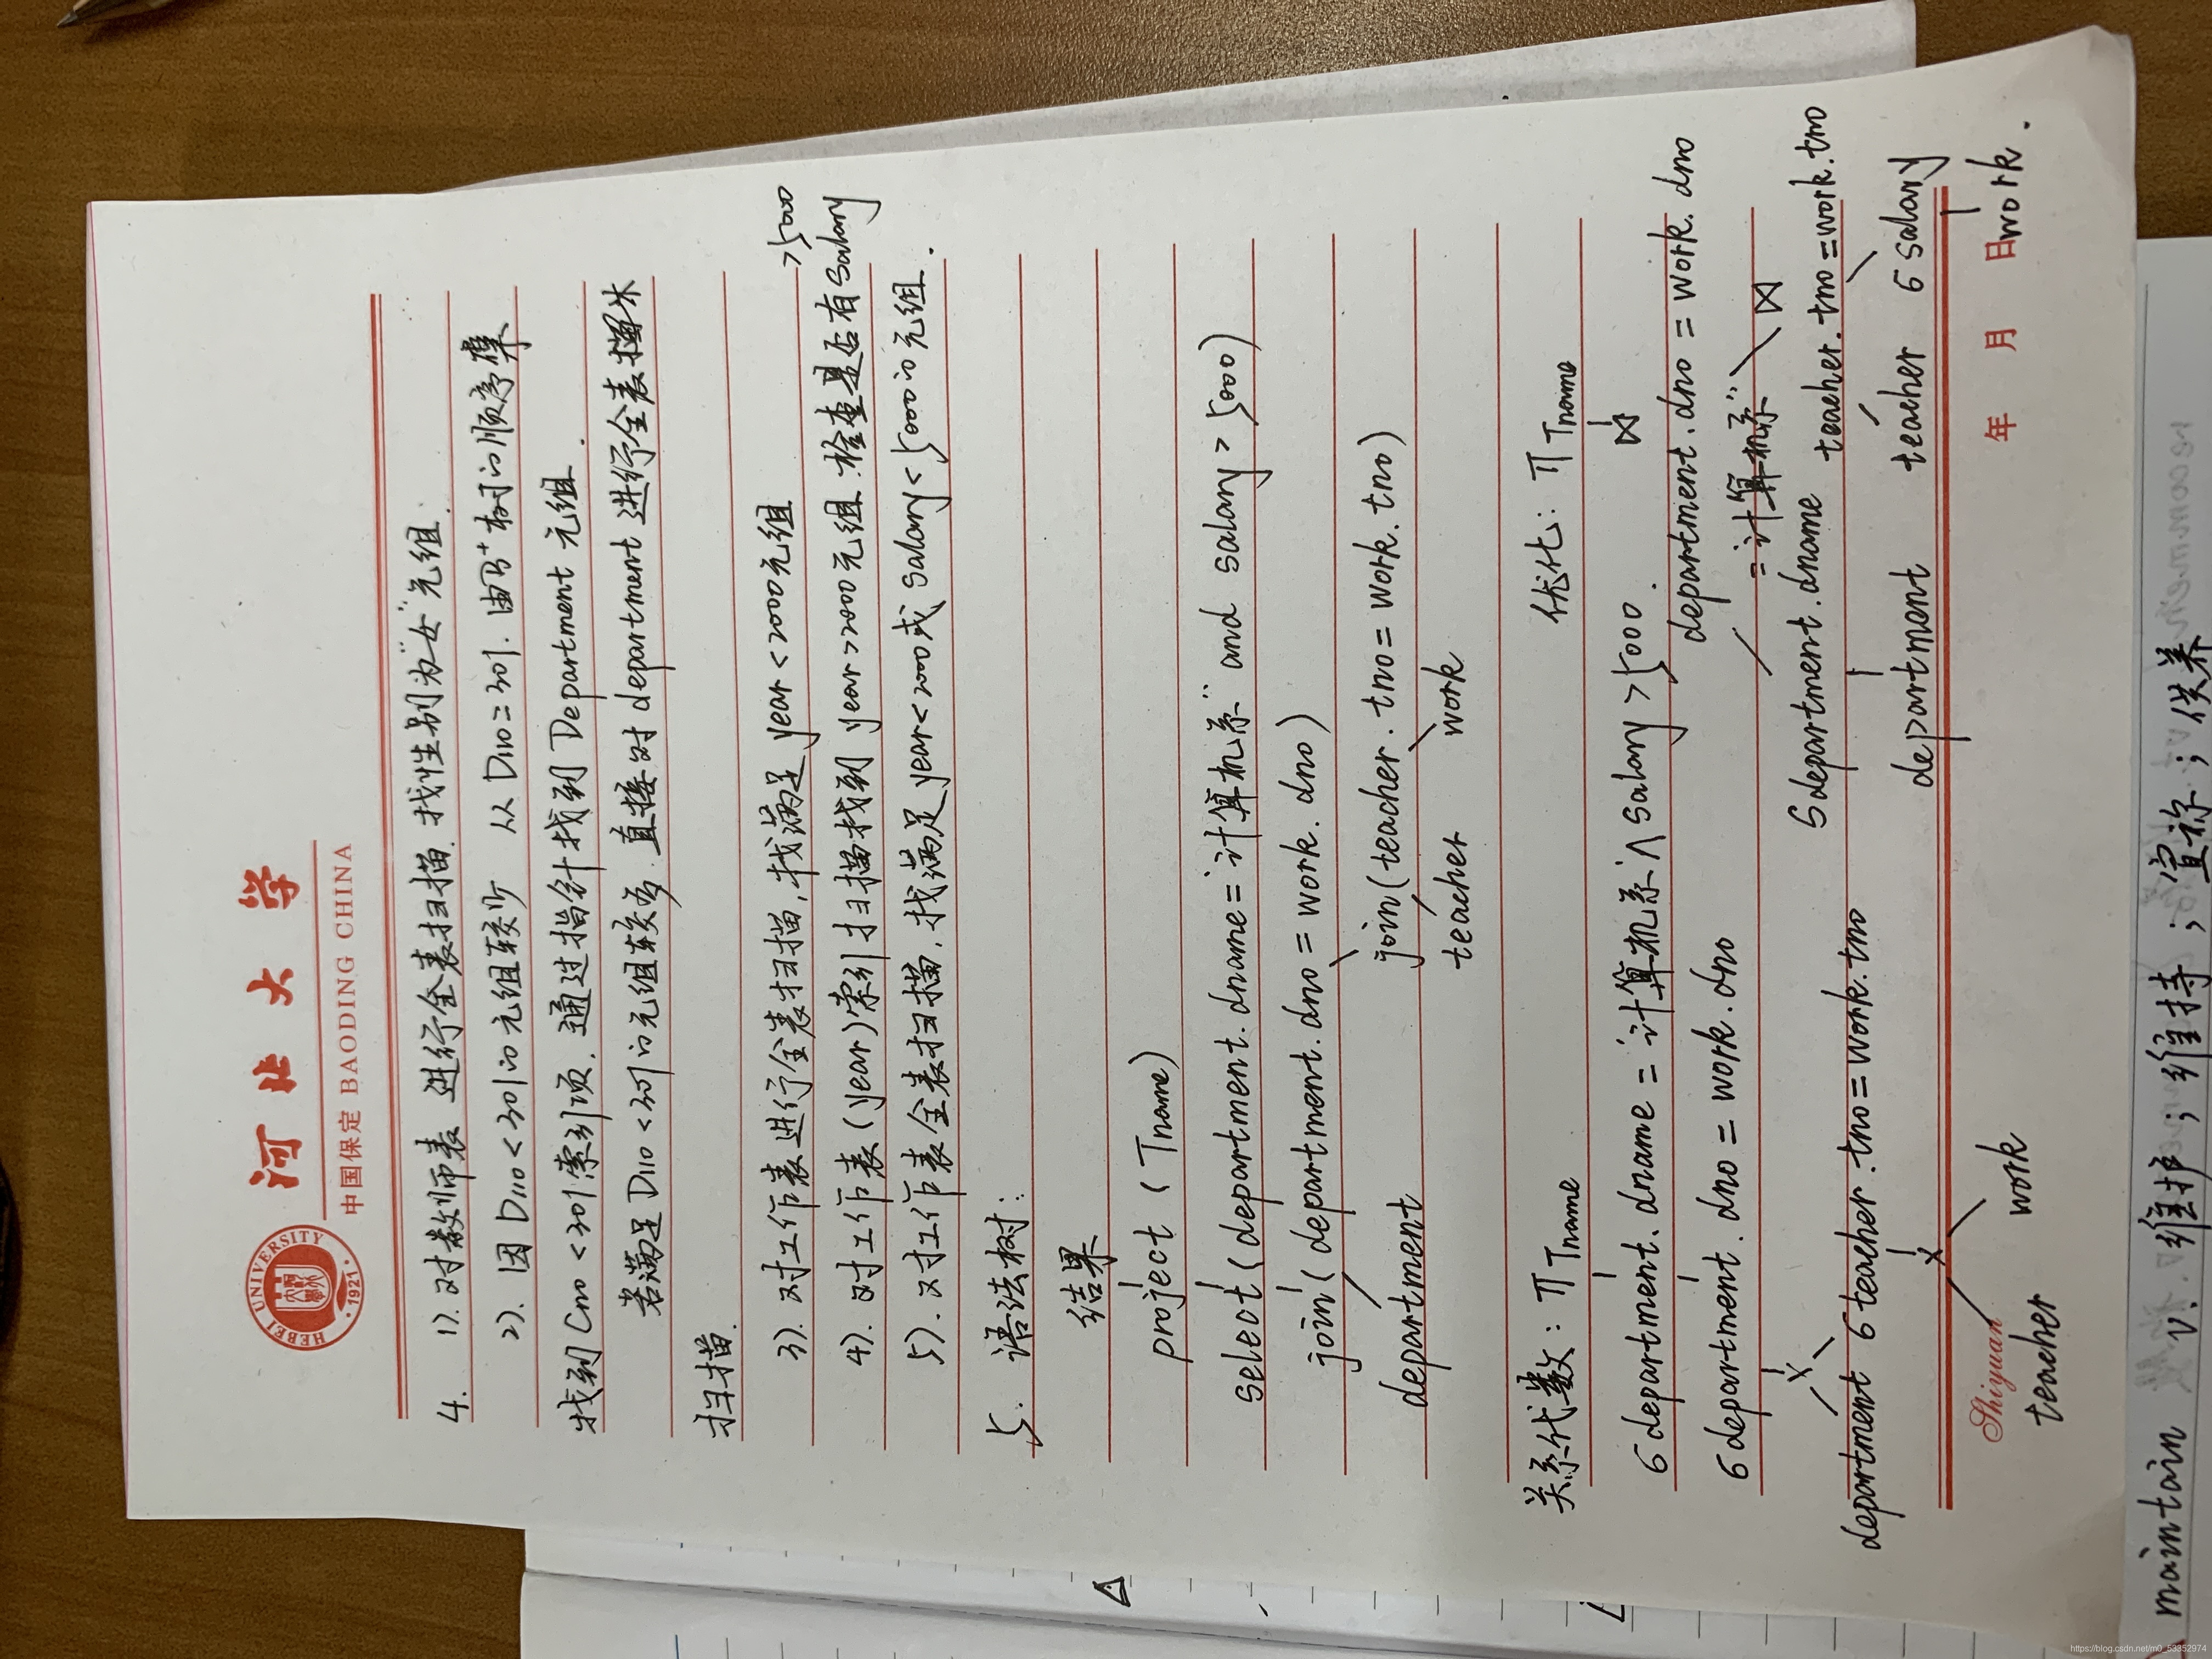 河北大学
中国保定 BAODING CHINA
HEBEI UNIVERSITY
·1921·
4. 1). 对教师表 进行全表扫描. 找性别为"女"元组.
2). 因 Dno<301的元组较少 从 Dno=301. 由B+树的顺序集
找到 Cno <301索引项. 通过指针找到 Department 元组.
若满足 Dno <301的元组较多. 直接对 department 进行全表
扫描.
3). 对工作表进行全表扫描, 找满足 year<2000元组
>5000
4). 对工作表(year)索引扫描找到 year>2000元组. 检查是否有 salary
5). 对工作表全表扫描. 找满足 year<2000或 salary<5000的元组.
5. 语法树:
结果
project ( Tname)
select(department.dname="计算机系" and salary> 5000)
join(department.dno=work.dno)
department join(teacher.tno=work.tno)
teacher work
关系代数: Π Tname 优化: Π Tname
⋈
6 department.dname='计算机系'∧salary>5000.
department.dno=work.dno
6 department.dno=work.dno
="计算机系" ⋈
× 6department.dname teacher.tno=work.tno
department 6 teacher.tno=work.tno
department teacher 6 salary
×
年 月 日 work.
Shiyuan
teacher work
maintain v. 维护; 维持; 宣称; 供养
https://blog.csdn.net/m0_53352974